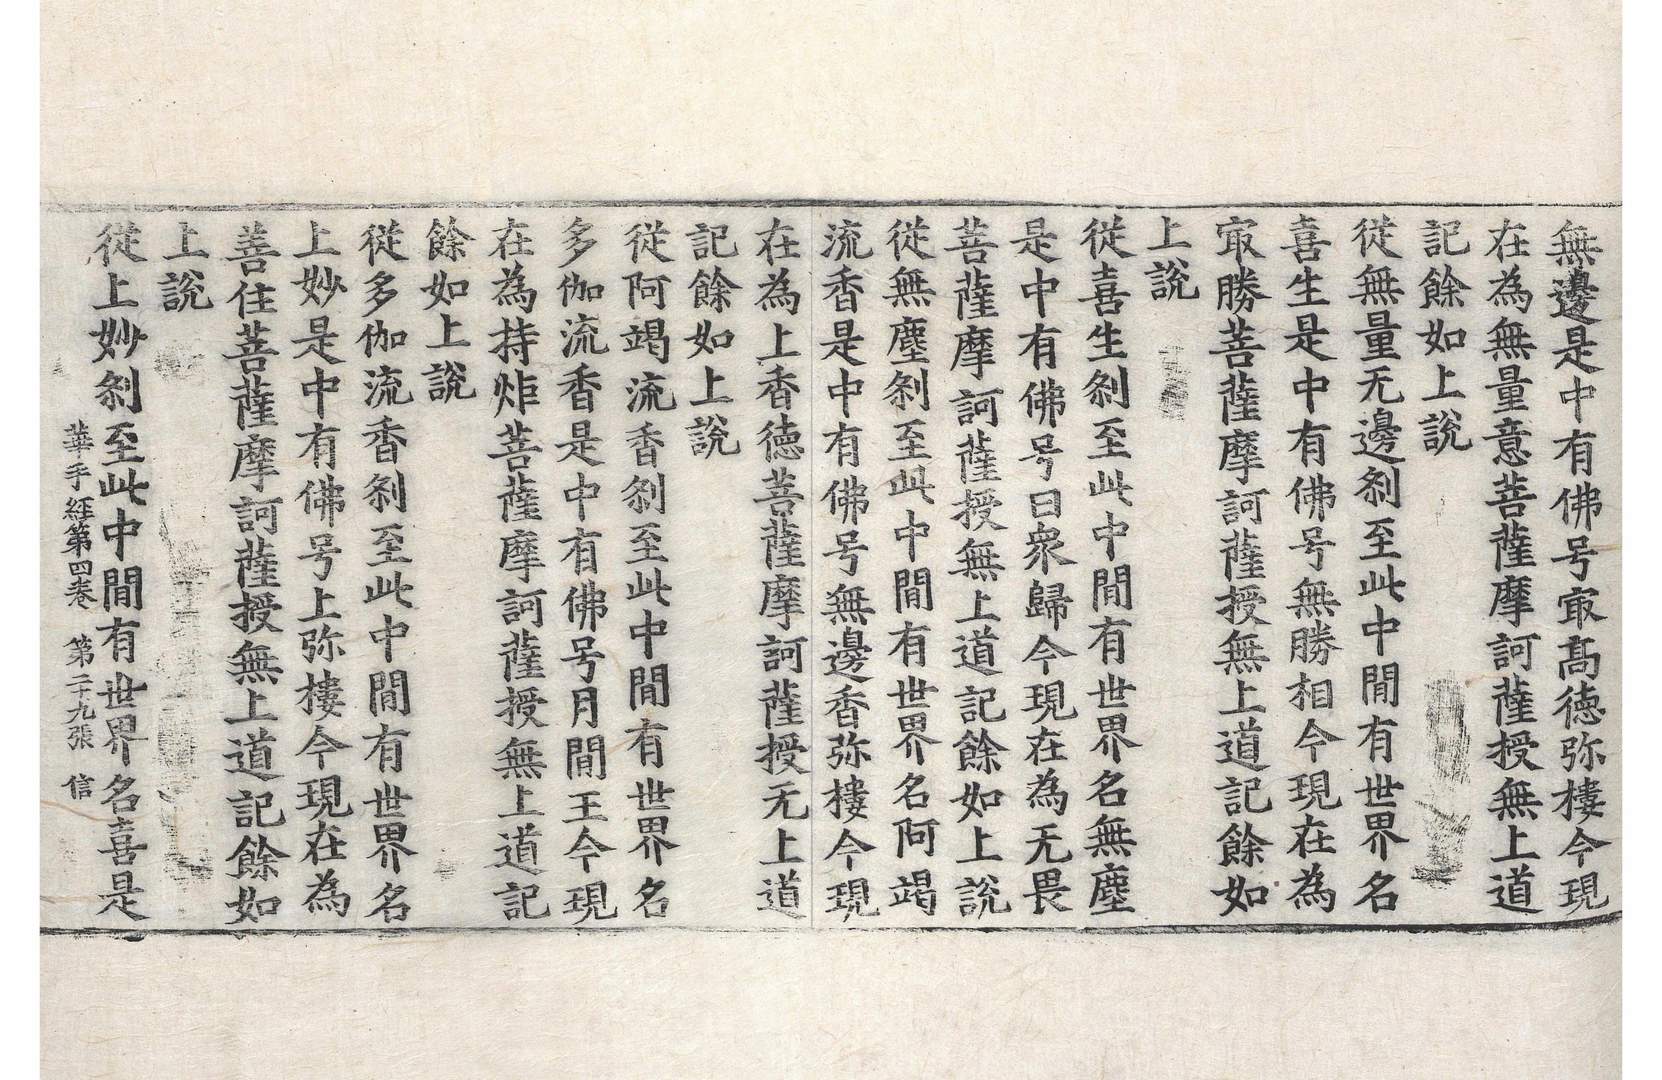 無邊是中有佛号㝡髙德弥樓今現
在為無量意菩薩摩訶薩授無上道
記餘如上說
從無量无邊刹至此中閒有世界名
喜生是中有佛号無勝相今現在為
㝡勝菩薩摩訶薩授無上道記餘如
上說
從喜生刹至此中閒有世界名無塵
是中有佛号曰衆歸今現在為无畏
菩薩摩訶薩授無上道記餘如上說
從無塵刹至此中閒有世界名阿竭
流香是中有佛号無邊香弥樓今現
在為上香德菩薩摩訶薩授无上道
記餘如上說
從阿竭流香刹至此中閒有世界名
多伽流香是中有佛号月閒王今現
在為持炬菩薩摩訶薩授無上道記
餘如上說
從多伽流香刹至此中閒有世界名
上妙是中有佛号上弥樓今現在為
善住菩薩摩訶薩授無上道記餘如
上說
從上妙刹至此中閒有世界名喜是
華手経第四卷 第二十九張 信